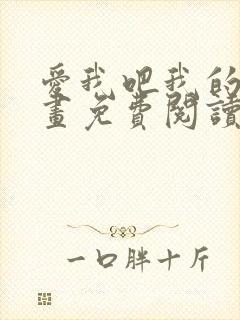 愛我吧我的
畫免費閱讀
一口胖十斤